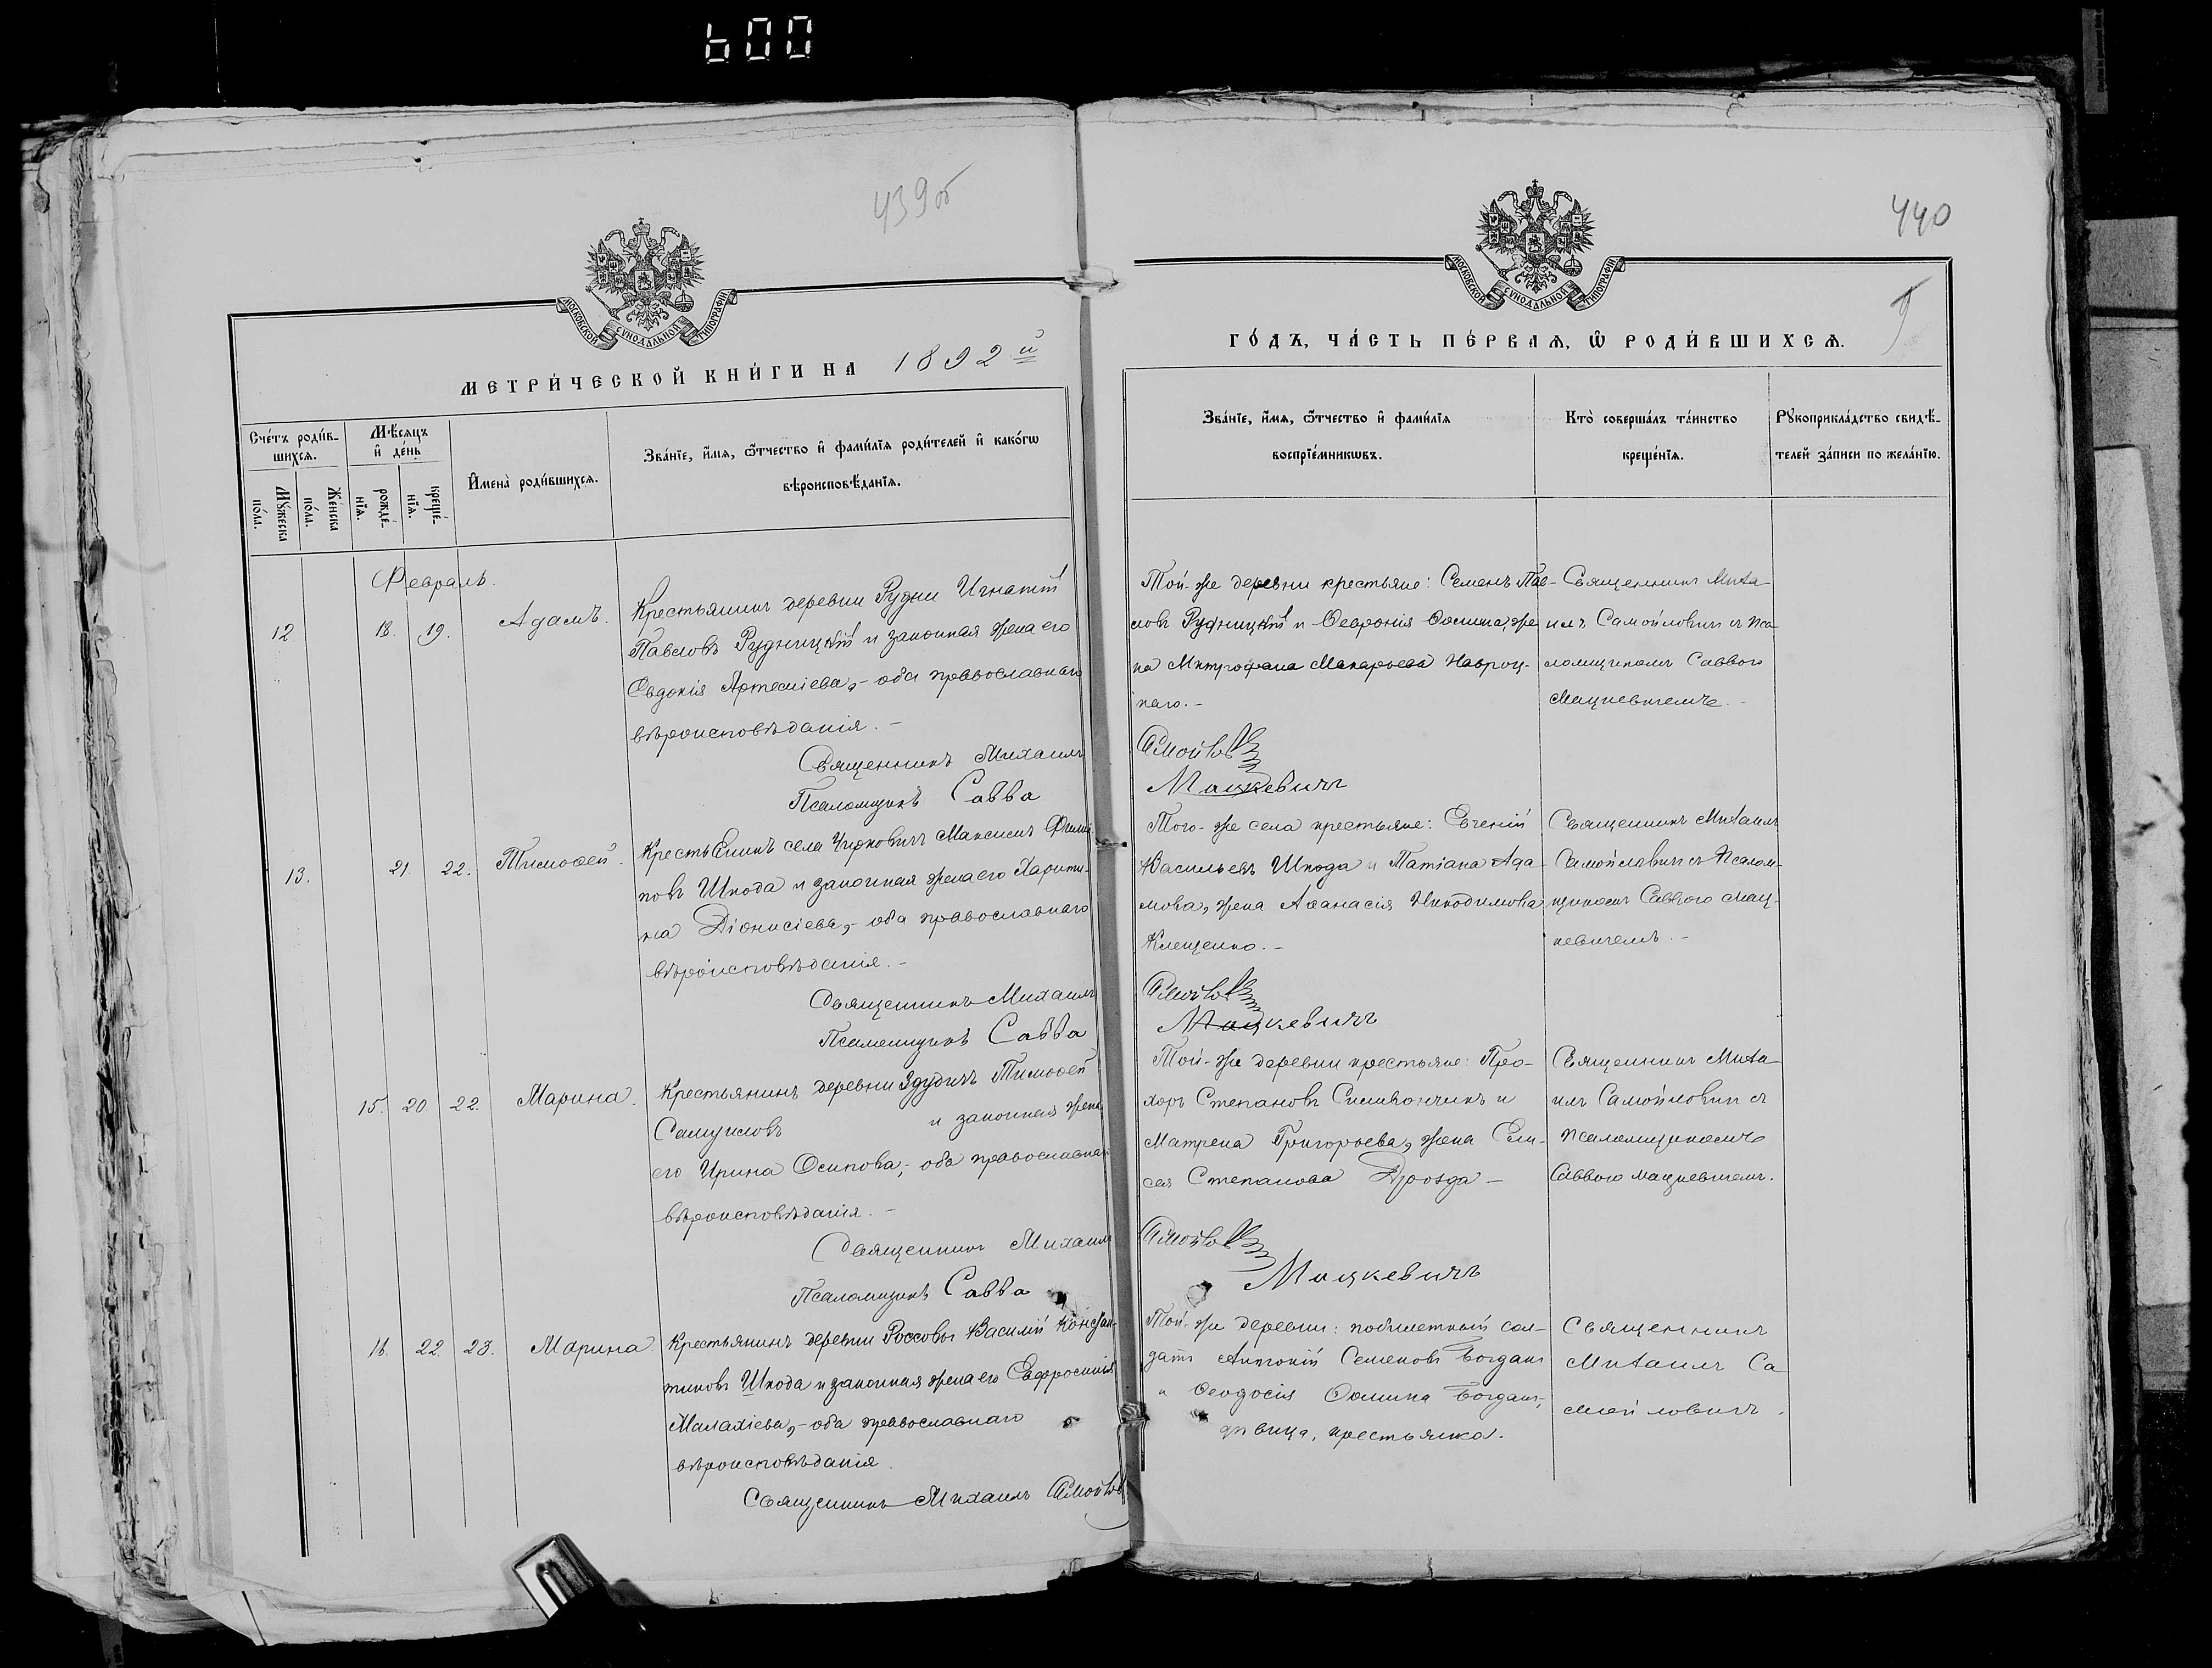 600
439об
МОСКОВСКОЙ СѴНОДАЛЬНОЙ ТИПОГРАФІИ
МЕТРИ́ЧЕСКОЙ КНИ́ГИ НА 1892й
Сче́тъ роди́в-
шихсѧ.
Мѣ́сѧцъ
и҆ де́нь
Мꙋ́жеска
по́ла.
Же́нска
по́ла.
рожде́-
нїѧ.
креще́-
нїѧ.
И҆мена̀ роди́вшихсѧ.
Зва́нїе, и҆́мѧ, ѻ҆́тчество и҆ фами́лїѧ роди́телей и҆ како́гѡ
вѣроисповѣ́данїѧ.
Февраль.
12. 18. 19. Адамъ.
Крестьянинъ деревни Рудни Игнатій
Павловъ Рудницкій и законная жена его
Евдокія Артеміева,- оба православнаго
вѣроисповѣданія.-
Священникъ Михаилъ
Псаломщикъ Савва
13. 21. 22. Тимоѳей.
Крестьянинъ села Чирковичъ Максимъ Филип-
повъ Шкода и законная жена его Харити-
на Діонисіева,- оба православнаго
вѣроисповѣданія.-
Священникъ Михаилъ
Псаломщикъ Савва
15. 20 22. Марина.
Крестьянинъ деревни Здудичъ Тимоѳей
Самуиловъ и законная жена
его Ирина Осипова,- оба православнаго
вѣроисповѣданія.-
Священникъ Михаилъ
Псаломщикъ Савва
16. 22. 23. Марина
Крестьянинъ деревни Россовы Василій Констан-
тиновъ Шкода и законная жена его Евфросинія
Малахіева,- оба православнаго
вѣроисповѣданія.
Священникъ Михаилъ Самойлов
440
9
МОСКОВСКОЙ СѴНОДАЛЬНОЙ ТИПОГРАФІИ
ГО́ДЪ, ЧА́СТЬ ПЕ́РВАѦ, Ѡ҆ РОДИ́ВШИХСѦ.
Зва́нїе, и҆́мѧ, ѻ҆́тчество и҆ фами́лїѧ
воспрїе́мникѡвъ.
Кто̀ соверша́лъ та́инство
креще́нїѧ.
Рꙋкоприкла́дство свидѣ́-
телей за́писи по жела́нїю.
Той-же деревни крестьяне: Семенъ Пав-
ловъ Рудницкій и Ѳевронія Ѳомина, же-
на Митрофана Макарьева Навроц-
каго.-
Священникъ Миха-
илъ Самойловичъ съ Пса-
ломщикомъ Саввою
Мацкевичемъ.-
Самойлов
Мацкевичъ
Того-же села крестьяне: Евгеній
Васильевъ Шкода и Татіана Ада-
мова, жена Аѳанасія Никодимова
Клещенко.-
Священникъ Михаилъ
Самойловичъ съ Псалом-
щикомъ Саввою Мац-
кевичемъ.-
Самойлов
Мацкевичъ
Той-же деревни крестьяне: Про-
хоръ Степановъ Симвончикъ и
Матрена Григорьева, жена Ели-
сея Степанова Дрозда-
Священникъ Миха-
илъ Самойловичъ съ
Псаломщикомъ
Саввою Мацкевичемъ.
Самойлов
Мацкевичъ
Той-же деревни: побилетный сол-
датъ Антоній Семеновъ Богданъ
и Ѳеодосія Ѳомина Богданъ,
дѣвица, крестьянка.
Священникъ
Михаилъ Са
мойловичъ.